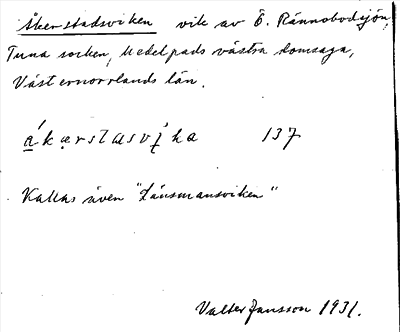 Åkerstadsviken vik av Ö. Rännobodsjön,
Tuna socken, Medelpads västra domsaga,
Västernorrlands län.
137
Kallas även "Länsmansviken"
Valter Jansson 1931.